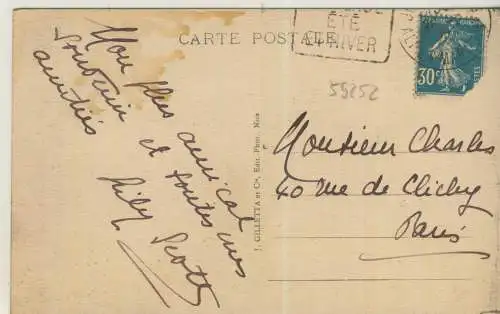 CARTE POSTALE
ÉTÉ
ET HIVER
30
55252
Mon plus amical
souvenir et toutes mes
amitiés
Scott
J. GILLETTA et Cie, Edit. Phot. Nice
Monsieur Charles
40 rue de Clichy
Paris